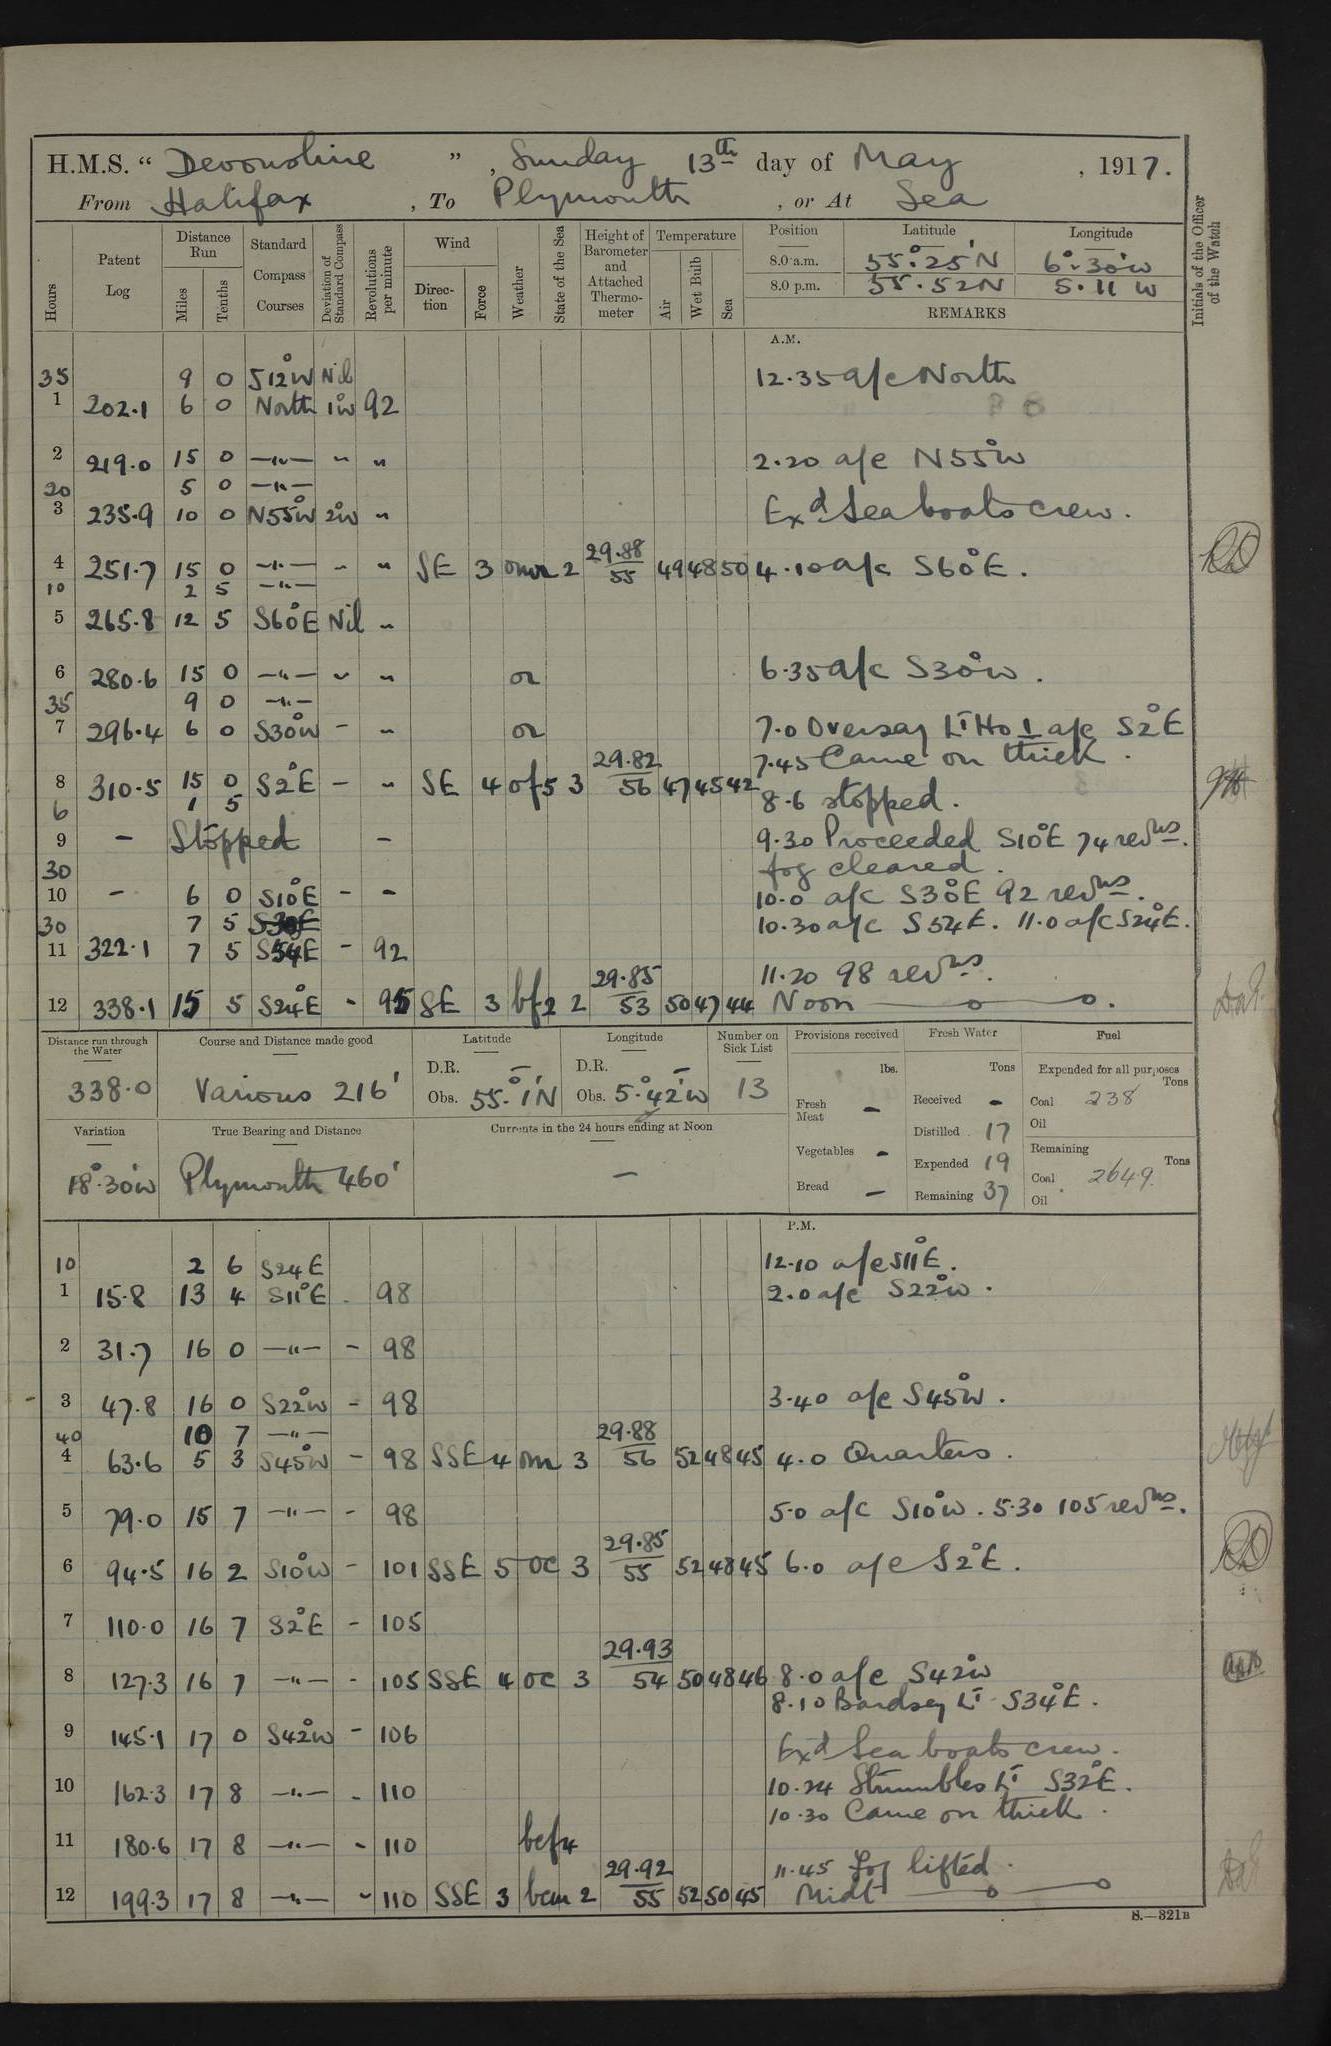 H.M.S. “ Devonshire ” , Sunday 13th day of May , 1917.
From Halifax , To Plymouth , or At Sea
Hours Patent Log Distance Run Miles Tenths Standard Compass Courses Deviation of Standard Compass Revolutions per minute Wind Direction Force Weather State of the Sea Height of Barometer and Attached Thermometer Temperature Air Wet Bulb Sea Position Latitude Longitude Initials of the Officer of the Watch
8.0 a.m. 55°.25'N 6°.30'W
8.0 p.m. 55.52N 5.11 W
REMARKS
A.M.
35 9 0 S12°W Nil 12.35 a/c North
1 202.1 6 0 North 1°W 92
2 219.0 15 0 —"— " " 2.20 a/c N55°W
20 5 0 —"—
3 235.9 10 0 N55°W 2°W " Exd Sea boats crew.
4 251.7 15 0 —"— " " SE 3 omr 2 29.88/55 49 48 50 4.10 a/c S60°E.
10 2 5 —"—
5 265.8 12 5 S60°E Nil "
6 280.6 15 0 —"— " " or 6.35 a/c S30°W.
35 9 0 —"—
7 296.4 6 0 S30°W - " or 7.0 Oversay Lt Ho ⊥ a/c S2°E
7.45 Came on thick.
8 310.5 15 0 S2°E - " SE 4 of5 3 29.82/56 47 45 42
6 1 5 8.6 stopped.
9 - Stopped - 9.30 Proceeded S10°E 74 revns.
30 fog cleared.
10 - 6 0 S10°E - - 10.0 a/c S30°E 92 revns.
30 7 5 S30E 10.30 a/c S54E. 11.0 a/c S24°E.
11 322.1 7 5 S54E - 92
11.20 98 revns.
12 338.1 15 5 S24°E - 95 SE 3 bf2 2 29.85/53 50 47 44 Noon
Distance run through the Water Course and Distance made good Latitude Longitude Number on Sick List Provisions received Fresh Water Fuel
338.0 Various 216' D.R. - Obs. 55°.1'N D.R. - Obs. 5°.42'W 13 lbs. Tons Expended for all purposes Tons
Fresh Meat - Received - Coal 238
Oil
Variation True Bearing and Distance Currents in the 24 hours ending at Noon Distilled 17
18°.30'W Plymouth 460' - Vegetables - Expended 19 Remaining Tons
Bread - Remaining 37 Coal 2649.
Oil
P.M.
10 2 6 S24E 12.10 a/c S11°E.
1 15.8 13 4 S11°E - 98 2.0 a/c S22°W.
2 31.7 16 0 —"— - 98
3 47.8 16 0 S22°W - 98 3.40 a/c S45°W.
40 10 7 —"—
4 63.6 5 3 S45°W - 98 SSE 4 om 3 29.88/56 52 48 45 4.0 Quarters.
5 79.0 15 7 —"— - 98 5.0 a/c S10°W. 5.30 105 revns.
6 94.5 16 2 S10°W - 101 SSE 5 oc 3 29.85/55 52 48 45 6.0 a/c S2°E.
7 110.0 16 7 S2°E - 105
8 127.3 16 7 —"— - 105 SSE 4 oc 3 29.93/54 50 48 46 8.0 a/c S42°W
8.10 Bardsey Lt S34°E.
9 145.1 17 0 S42°W - 106 Exd Sea boats crew.
10 162.3 17 8 —"— - 110 10.24 Strumbles Lt S32°E.
10.30 Came on thick.
11 180.6 17 8 —"— " 110 bcf4
11.45 Fog lifted.
12 199.3 17 8 —"— " 110 SSE 3 bcm 2 29.92/55 52 50 45 Midt
S.—321B